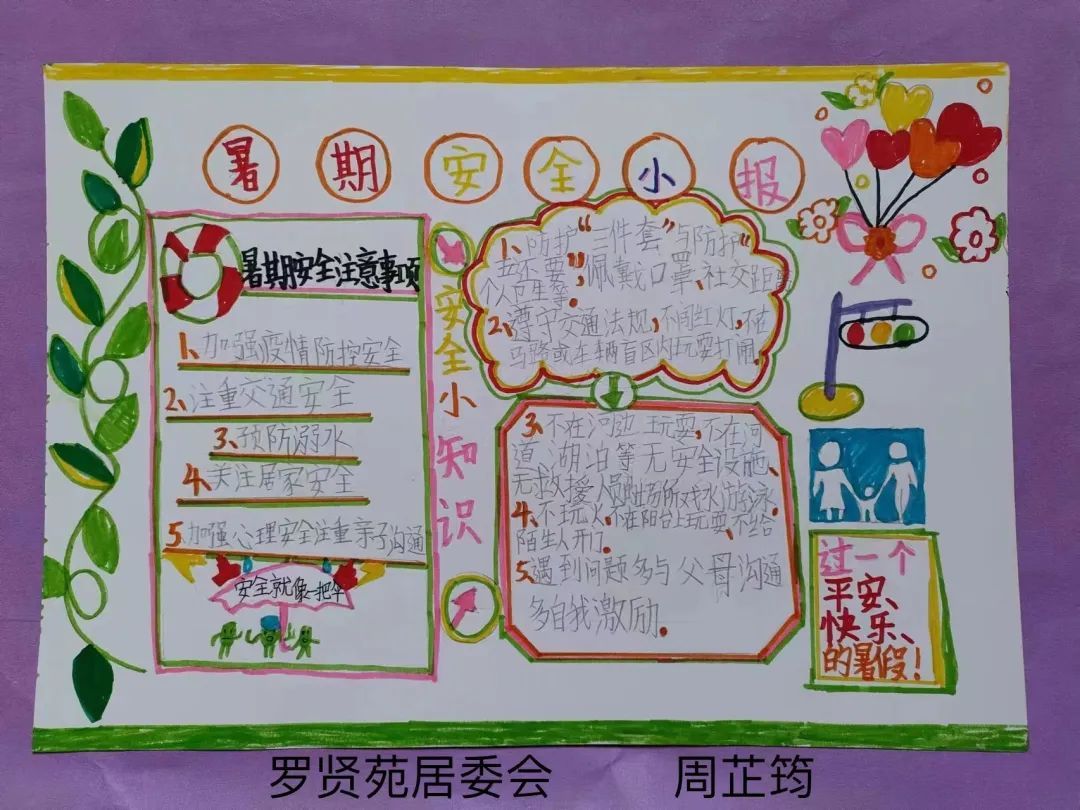 暑期安全小报
暑期安全注意事项
1、加强疫情防控安全
2、注重交通安全
3、预防溺水
4、关注居家安全
5、加强心理安全注重亲子沟通
安全就像一把伞
安全小知识
1、防护“三件套”与防护“
五还要”，佩戴口罩、社交距离
个人卫生等。
2、遵守交通法规，不闯红灯，不在
马路或车辆盲区内玩耍打闹。
3、不在河边玩耍，不在河
道、湖泊等无安全设施、
无救援人员的场所戏水游泳。
4、不玩火，不在阳台上玩耍、不给
陌生人开门。
5、遇到问题多与父母沟通
多自我激励。
过一个
平安、
快乐、
的暑假！
罗贤苑居委会 周芷筠